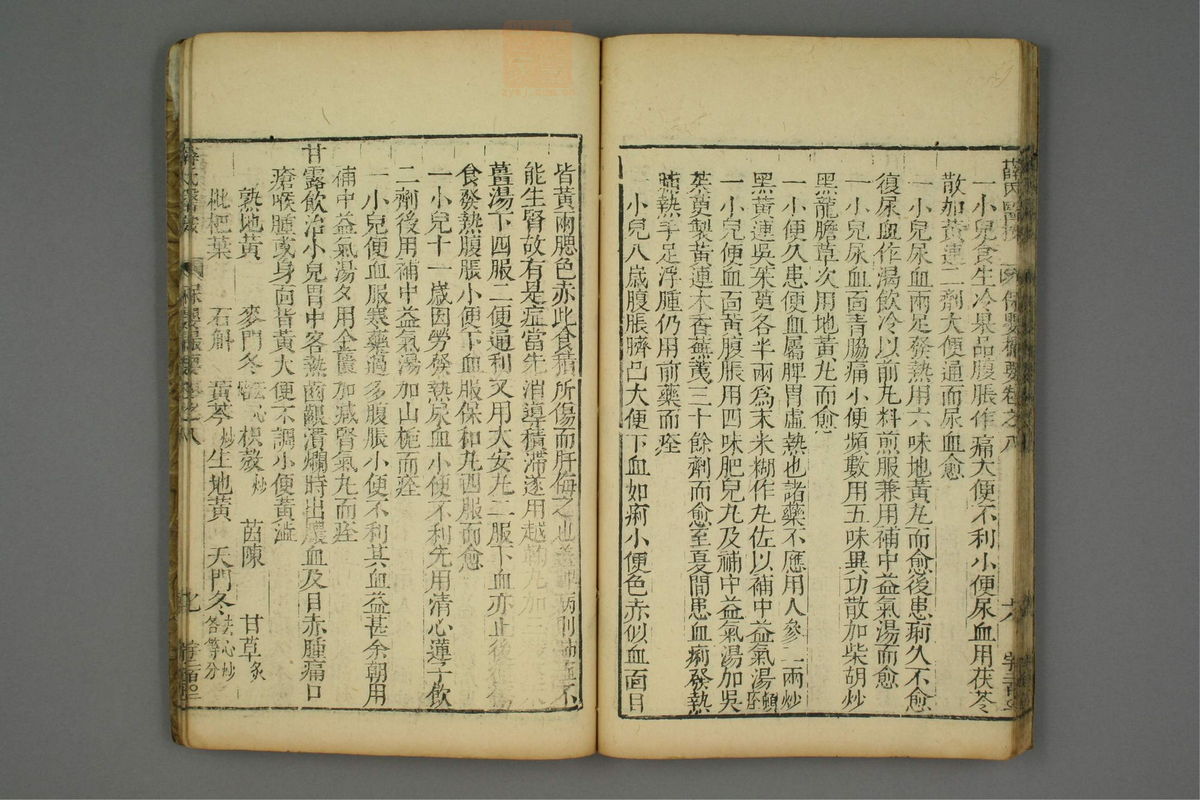 一小兒食生冷果品腹脹作痛大便不利小便尿血用茯苓
散加黃連二劑大便通而尿血愈
一小兒尿血兩足發熱用六味地黃丸而愈後患痢久不愈
復尿血作渴飲冷以前丸料煎服兼用補中益氣湯而愈
一小兒尿血面青脇痛小便頻數用五味異功散加柴胡炒
黑龍膽草次用地黃丸而愈
一小便久患便血屬脾胃虛熱也諸藥不應用人參二兩炒
黑黃連吳茱萸各半兩爲末米糊作丸佐以補中益氣湯頓痊
一小兒便血面黃腹脹用四味肥兒丸及補中益氣湯加吳
茱萸製黃連木香蕪荑三十餘劑而愈至夏間患血痢發熱
手足浮腫仍用前藥而痊
一小兒八歲腹脹臍凸大便下血如痢小便色赤似血面目
皆黃兩腮色赤此食積所傷而肝侮之也病則不
能生腎故有是症當先消導積滯遂用越鞠丸加三
薑湯下四服二便通利又用大安丸二服下血亦止後
食發熱腹脹小便下血服保和丸四服而愈
一小兒十一歲因勞發熱尿血小便不利先用清心蓮子飲
二劑後用補中益氣湯加山梔而痊
一小兒便血服寒藥過多腹脹小便不利其血益甚余朝用
補中益氣湯夕用金匱加減腎氣丸而痊
甘露飲治小兒胃中客熱齒齦潰爛時出膿血及目赤腫痛口
瘡喉腫或身面皆黃大便不調小便黃澁
熟地黃 麥門冬去心 枳殼炒 茵陳 甘草炙
枇杷葉 石斛 黃芩炒 生地黃 天門冬去心炒各等分
薛氏醫按 保嬰撮要卷之八